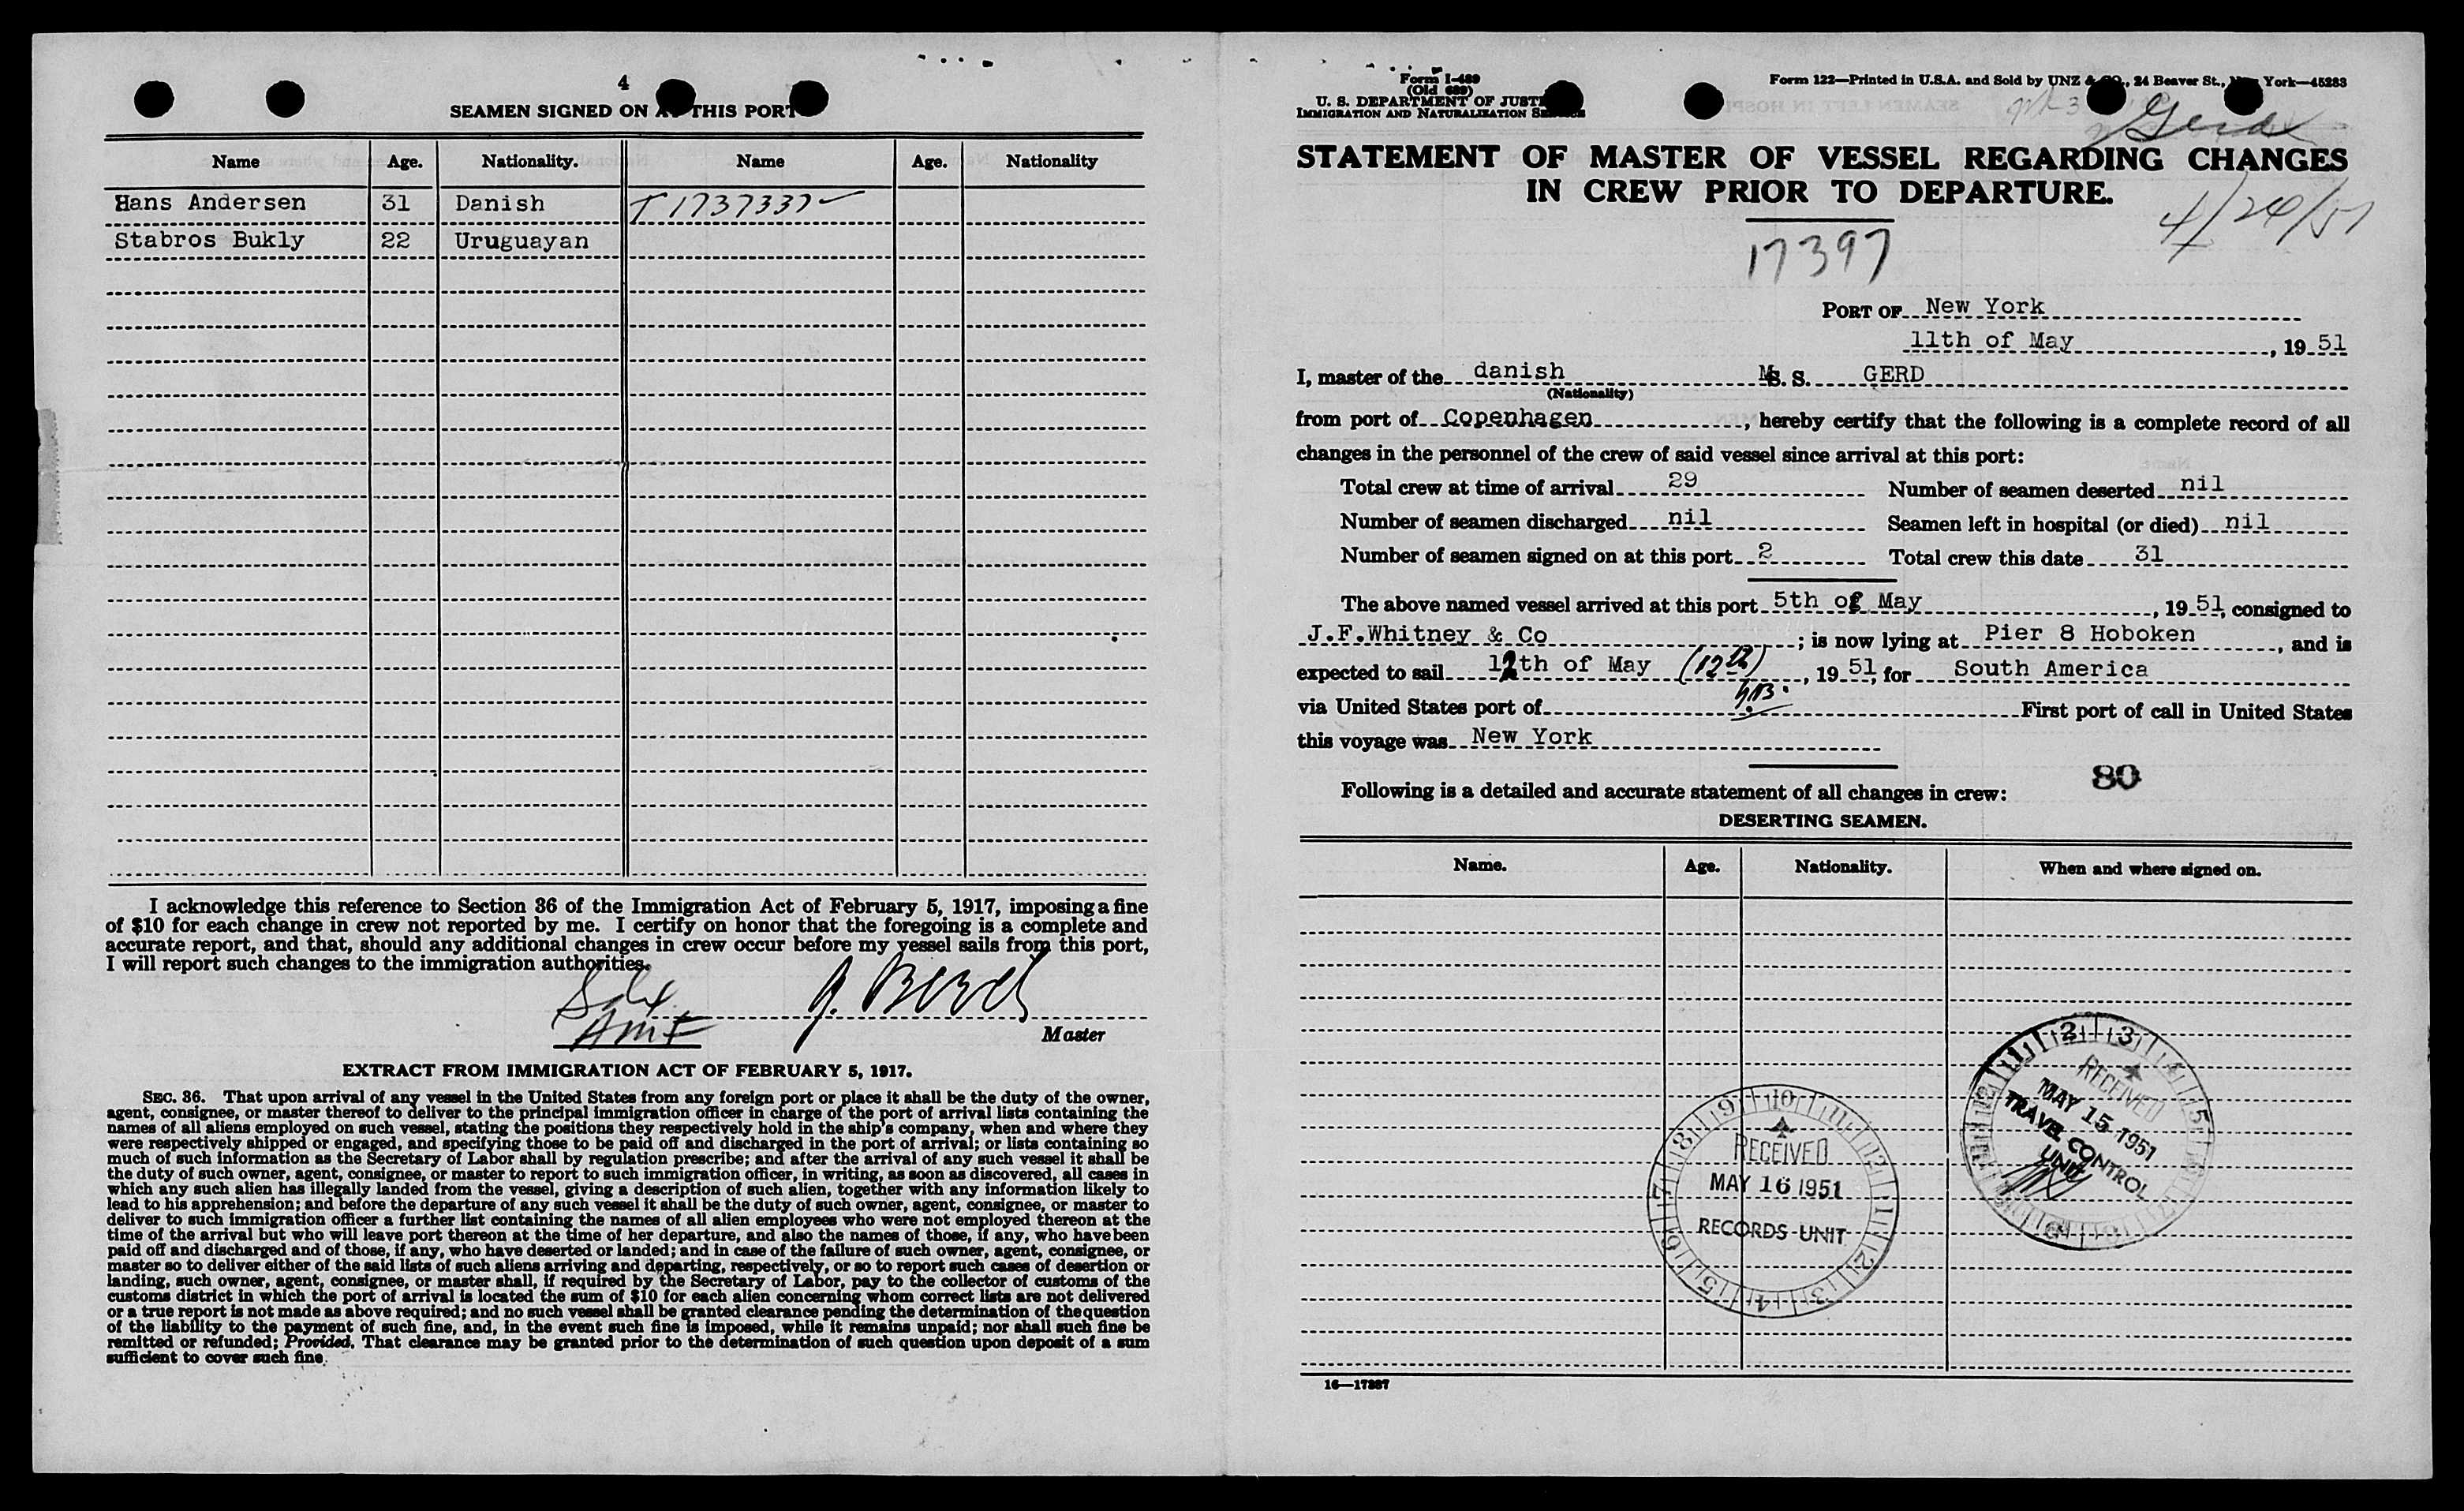 4
SEAMEN SIGNED ON AT THIS PORT
Name Age. Nationality. Name Age. Nationality
Hans Andersen 31 Danish T 1737337
Stabros Bukly 22 Uruguayan
I acknowledge this reference to Section 36 of the Immigration Act of February 5, 1917, imposing a fine
of $10 for each change in crew not reported by me. I certify on honor that the foregoing is a complete and
accurate report, and that, should any additional changes in crew occur before my vessel sails from this port,
I will report such changes to the immigration authorities.
Master
EXTRACT FROM IMMIGRATION ACT OF FEBRUARY 5, 1917.
SEC. 36. That upon arrival of any vessel in the United States from any foreign port or place it shall be the duty of the owner,
agent, consignee, or master thereof to deliver to the principal immigration officer in charge of the port of arrival lists containing the
names of all aliens employed on such vessel, stating the positions they respectively hold in the ship's company, when and where they
were respectively shipped or engaged, and specifying those to be paid off and discharged in the port of arrival; or lists containing so
much of such information as the Secretary of Labor shall by regulation prescribe; and after the arrival of any such vessel it shall be
the duty of such owner, agent, consignee, or master to report to such immigration officer, in writing, as soon as discovered, all cases in
which any such alien has illegally landed from the vessel, giving a description of such alien, together with any information likely to
lead to his apprehension; and before the departure of any such vessel it shall be the duty of such owner, agent, consignee, or master to
deliver to such immigration officer a further list containing the names of all alien employees who were not employed thereon at the
time of the arrival but who will leave port thereon at the time of her departure, and also the names of those, if any, who have been
paid off and discharged and of those, if any, who have deserted or landed; and in case of the failure of such owner, agent, consignee, or
master so to deliver either of the said lists of such aliens arriving and departing, respectively, or so to report such cases of desertion or
landing, such owner, agent, consignee, or master shall, if required by the Secretary of Labor, pay to the collector of customs of the
customs district in which the port of arrival is located the sum of $10 for each alien concerning whom correct lists are not delivered
or a true report is not made as above required; and no such vessel shall be granted clearance pending the determination of the question
of the liability to the payment of such fine, and, in the event such fine is imposed, while it remains unpaid; nor shall such fine be
remitted or refunded; Provided, That clearance may be granted prior to the determination of such question upon deposit of a sum
sufficient to cover such fine.
Form I-489
(Old 689)
U. S. DEPARTMENT OF JUSTICE
IMMIGRATION AND NATURALIZATION SERVICE
Form 122—Printed in U.S.A. and Sold by UNZ & CO., 24 Beaver St., New York—45283
Gerd
STATEMENT OF MASTER OF VESSEL REGARDING CHANGES
IN CREW PRIOR TO DEPARTURE.
4/24/51
17397
PORT OF New York
11th of May, 19 51
I, master of the danish M. S. GERD
(Nationality)
from port of Copenhagen, hereby certify that the following is a complete record of all
changes in the personnel of the crew of said vessel since arrival at this port:
Total crew at time of arrival 29 Number of seamen deserted nil
Number of seamen discharged nil Seamen left in hospital (or died) nil
Number of seamen signed on at this port 2 Total crew this date 31
The above named vessel arrived at this port 5th of May, 19 51, consigned to
J.F.Whitney & Co; is now lying at Pier 8 Hoboken, and is
expected to sail 12th of May (12th), 19 51, for South America
via United States port of First port of call in United States
this voyage was New York
80
Following is a detailed and accurate statement of all changes in crew:
DESERTING SEAMEN.
Name. Age. Nationality. When and where signed on.
RECEIVED
MAY 15 1951
TRAVEL CONTROL
UNIT
RECEIVED
MAY 16 1951
RECORDS UNIT
16—17387